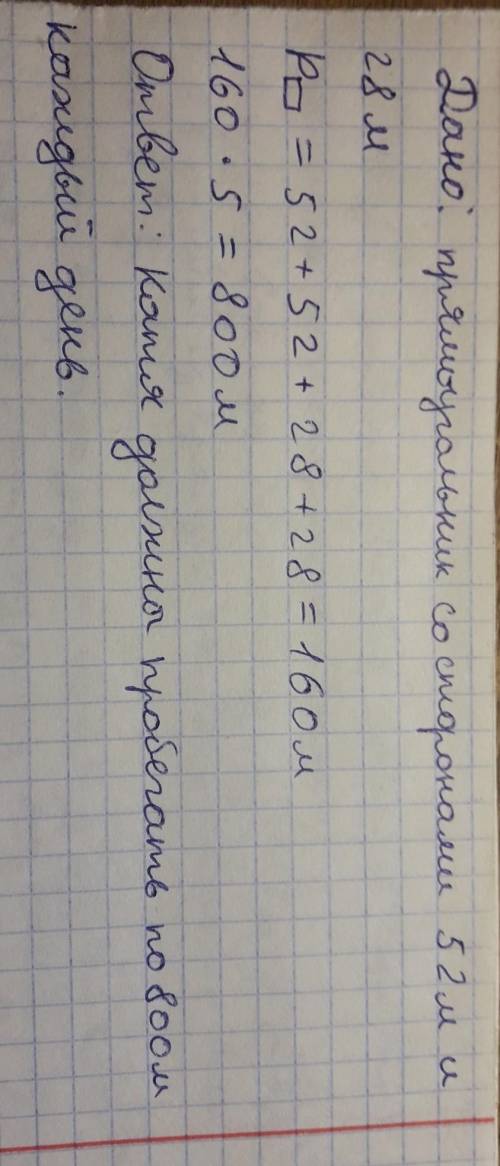 Дано: прямоугольник со сторонами 52 м и
28 м
P▭ = 52 + 52 + 28 + 28 = 160 м
160 · 5 = 800 м
Ответ: Катя должна пробегать по 800 м
каждый день.